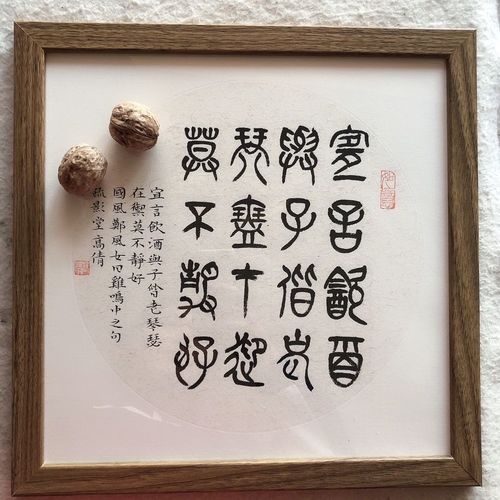 宜言飲酒
與子偕老
琴瑟在御
莫不靜好
宜言飲酒與子偕老琴瑟
在禦莫不靜好
國風鄭風女曰雞鳴中之句
疏影堂高倩